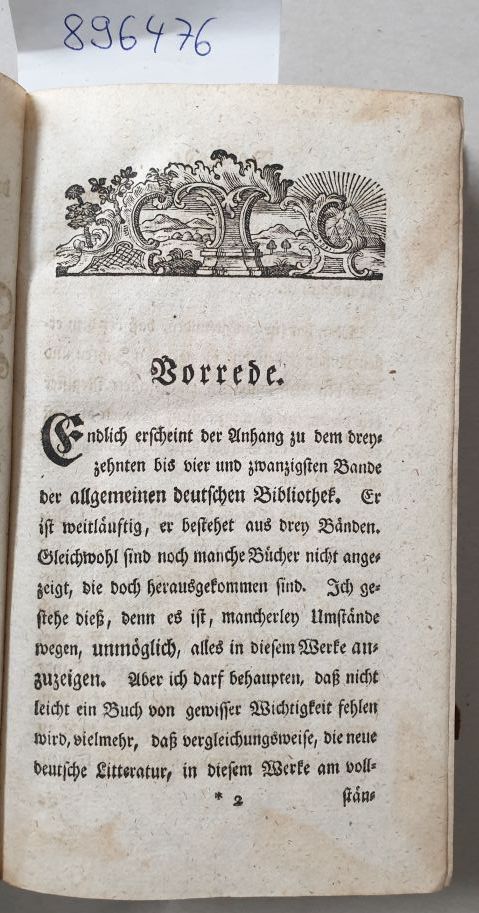 896476
Vorrede.
Endlich erscheint der Anhang zu dem drey-
zehnten bis vier und zwanzigsten Bande
der allgemeinen deutschen Bibliothek. Er
ist weitläuftig, er bestehet aus drey Bänden.
Gleichwohl sind noch manche Bücher nicht ange-
zeigt, die doch herausgekommen sind. Ich ge-
stehe dieß, denn es ist, mancherley Umstände
wegen, unmöglich, alles in diesem Werke an-
zuzeigen. Aber ich darf behaupten, daß nicht
leicht ein Buch von gewisser Wichtigkeit fehlen
wird, vielmehr, daß vergleichungsweise, die neue
deutsche Litteratur, in diesem Werke am voll-
* 2 stän-